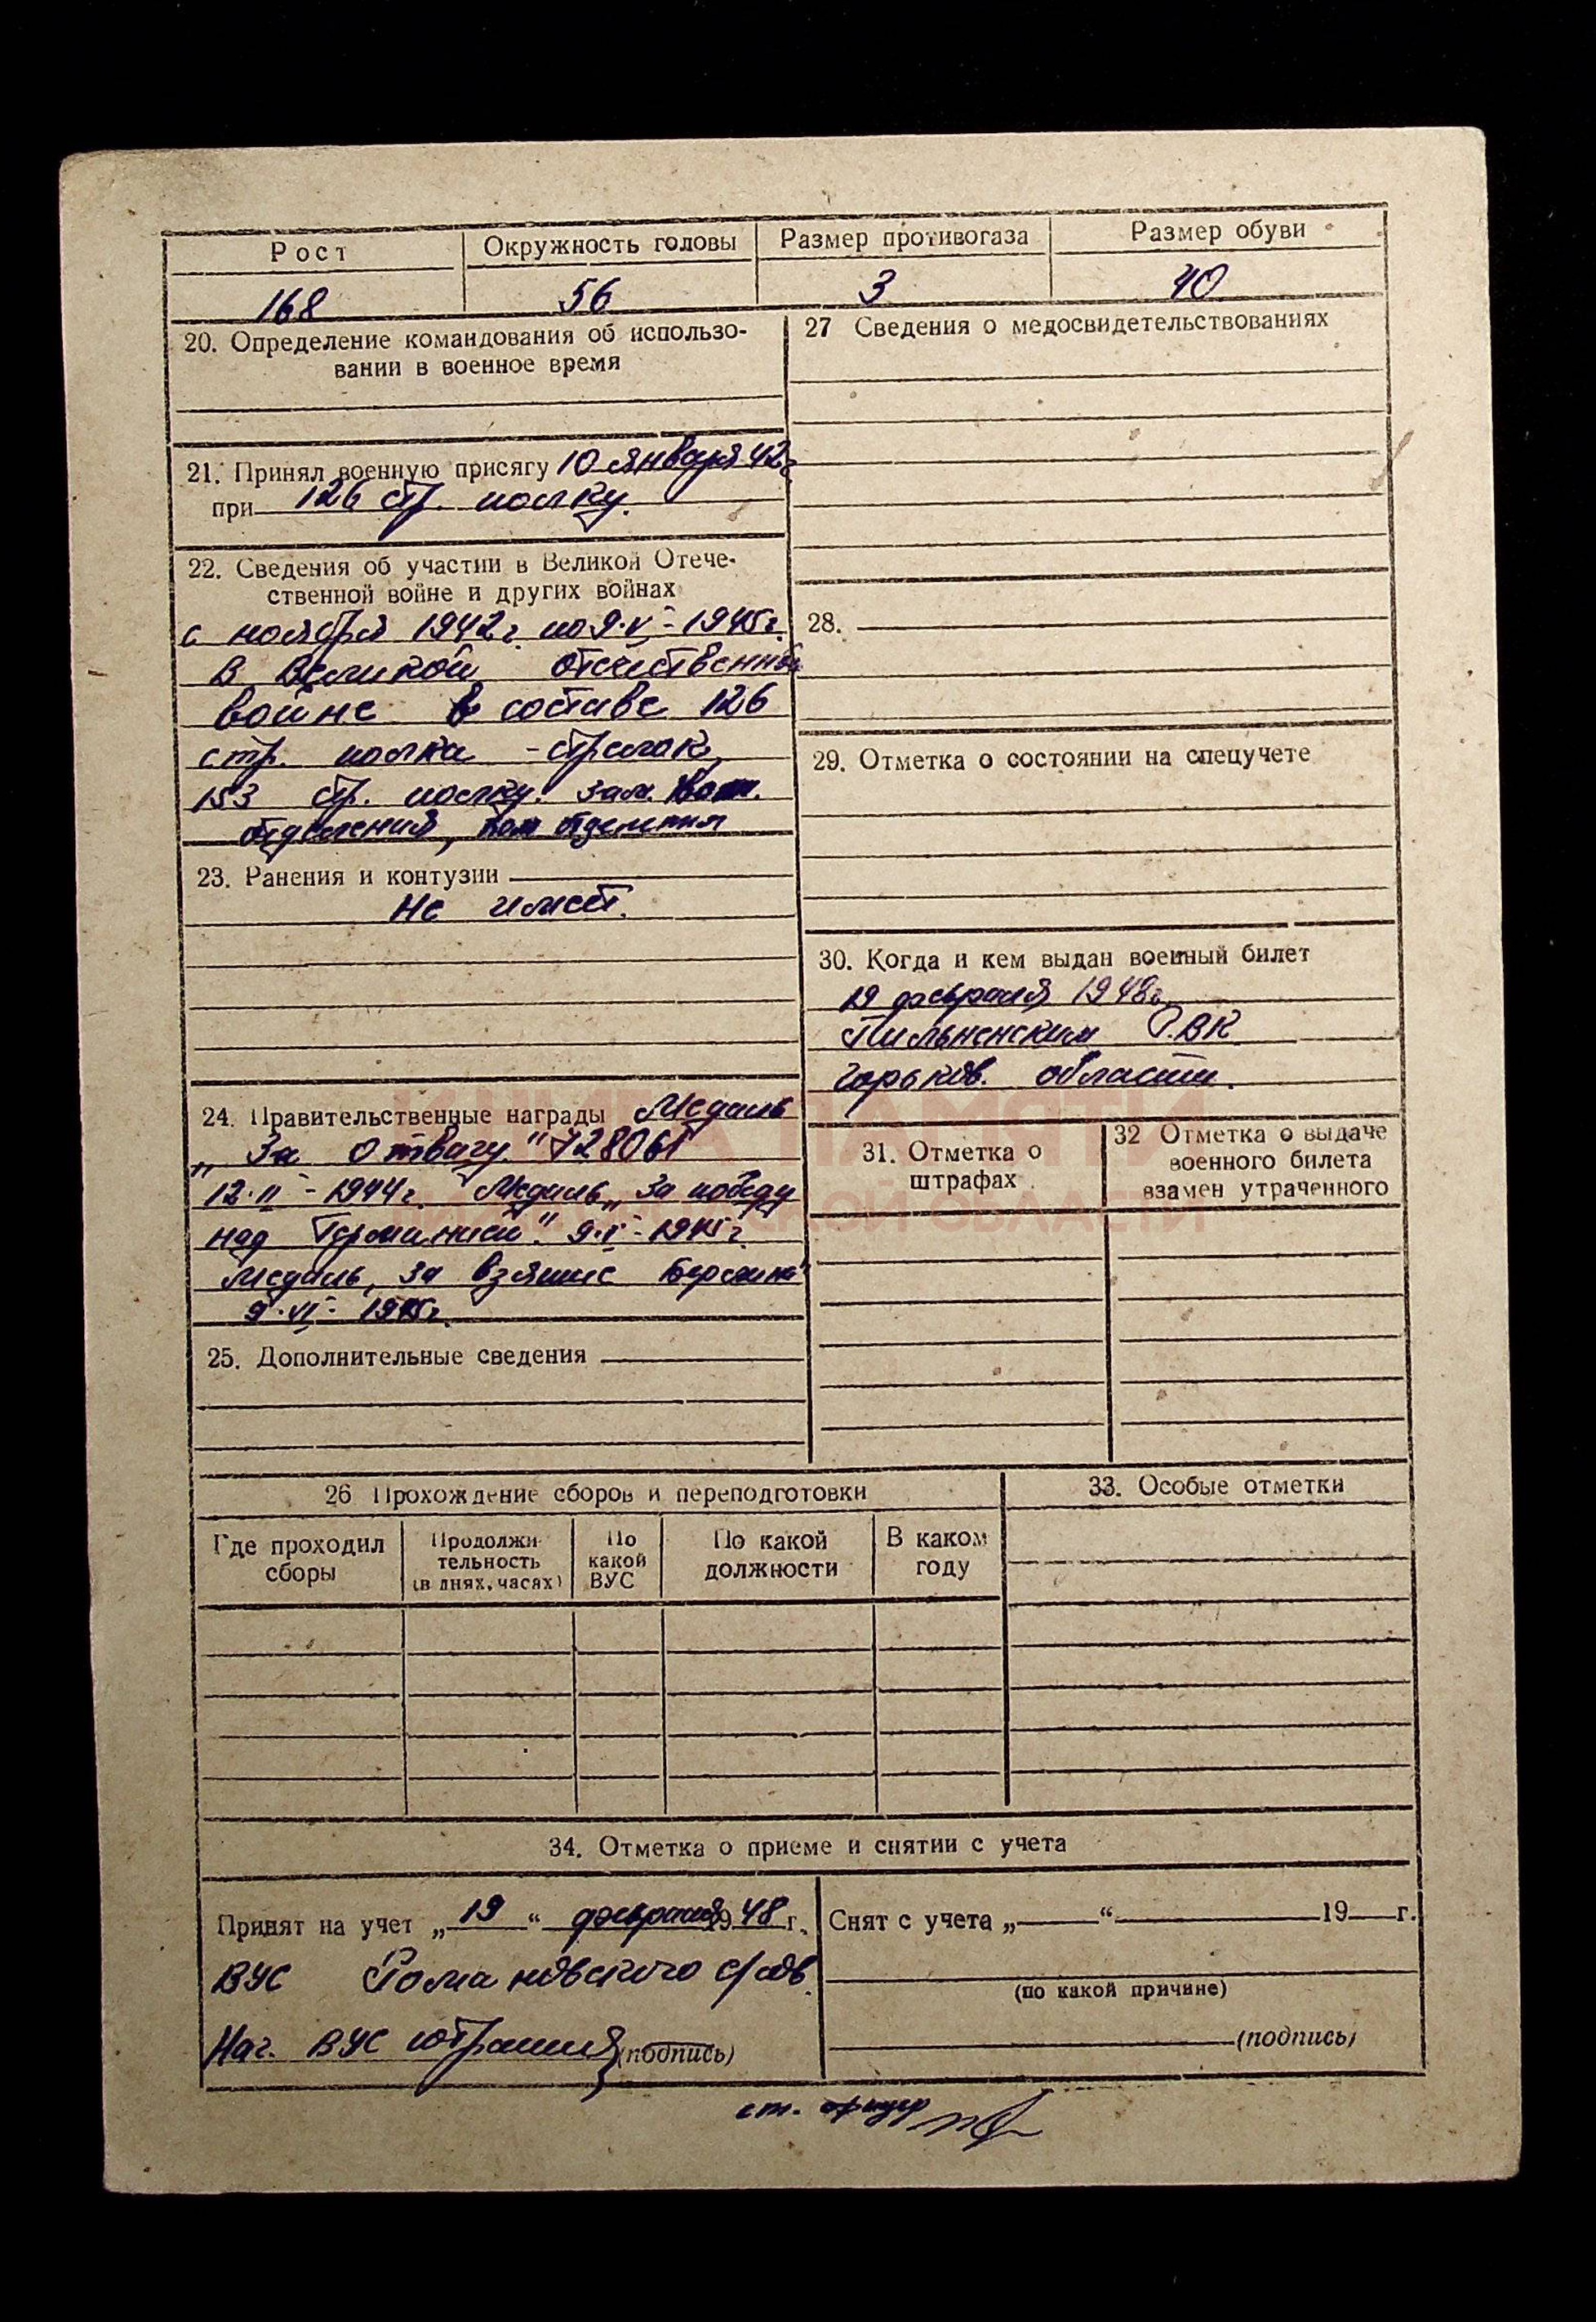 Рост
Окружность головы
Размер противогаза
Размер обуви
168
56
3
40
20. Определение командования об использо-
вании в военное время
21. Принял военную присягу 10 января 42 г
при 126 стр. полку.
22. Сведения об участии в Великой Отече-
ственной войне и других войнах
с ноября 1942 г. по 9.V-1945 г.
в Великой отечественной
войне в составе 126
стр. полка - стрелок,
153 стр. полку. зам. ком.
отделения, ком отделения
23. Ранения и контузии
Не имеет.
24. Правительственные награды Медаль
„За отвагу"
12.II-1944 г. Медаль „За победу
над Германией". 9.V-1945 г.
Медаль „За взятие Берлина"
9.VI-1945 г.
25. Дополнительные сведения
27 Сведения о медосвидетельствованиях
28.
29. Отметка о состоянии на спецучете
30. Когда и кем выдан военный билет
19 февраля 1948 г.
Пильненским РВК
Горьков. области.
31. Отметка о
штрафах
32 Отметка о выдаче
военного билета
взамен утраченного
КНИГА ПАМЯТИ
ОБЛАСТИ
26 Прохождение сборов и переподготовки
Где проходил
сборы
Продолжи-
тельность
(в днях, часах)
По
какой
ВУС
По какой
должности
В каком
году
33. Особые отметки
34. Отметка о приеме и снятии с учета
Принят на учет „19" февраля 1948 г.
ВУС Романовского с/сов.
Нач. ВУС (подпись)
Снят с учета „ " 19 г.
(по какой причине)
(подпись)
ст. офицер